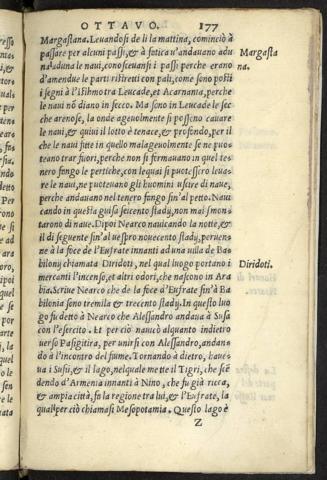 OTTAVO. 177
Margastana. Leuandosi de lì la mattina, cominciò à
passare per alcuni passi, & à fatica u'andauano adu
na aduna le naui, conosceuansi i passi perche erano
d'amendue le parti ristretti con pali, come sono posti
i segni à l'Isthmo tra Leucade, et Acarnania, perche
le naui nō diano in secco. Ma sono in Leucade le sec
che arenose, la onde ageuolmente si possono cauare
le naui, & quiui il lotto è tenace, & profondo, per il
che le naui fitte in quello malageuolmente se ne puo
teano trar fuori, perche non si fermauano in quel te=
nero fango le pertiche, con lequai si potessero leua=
re le naui, ne poteuano gli huomini uscire di naue,
perche andauano nel tenero fango sin'al petto. Naui
cando in questa guisa seicento stadij, non mai smon=
tarono di naue. Dipoi Nearco nauicando la notte, &
il dì seguente sin'al uespro nouecento stadij, peruen=
ne à la foce de l'Eufrate innanti ad una uilla de Ba=
bilonij chiamata Diridoti, nel qual luogo portano i
mercanti l'incenso, et altri odori, che nascono in Ara
bia. Scriue Nearco che de la foce d'Eufrate sin'à Ba
bilonia sono tremila & trecento stadij. In questo luo
go fu detto à Nearco che Alessandro andaua à Susa
con l'esercito. Et per ciò nauicò alquanto indietro
uerso Pasigitira, per unir si con Alessandro, andan=
do à l'incontro del fiume. Tornando à dietro, haue=
ua i Susij, & il lago, nel quale mette il Tigri, che scē
dendo d'Armenia innanti à Nino, che fu già ricca,
& ampia città, fa la regione tra lui, & l'Eufrate, la
qual per ciò chiamasi Mesopotamia. Questo lago è
Z
Margasta
na.
Diridoti.